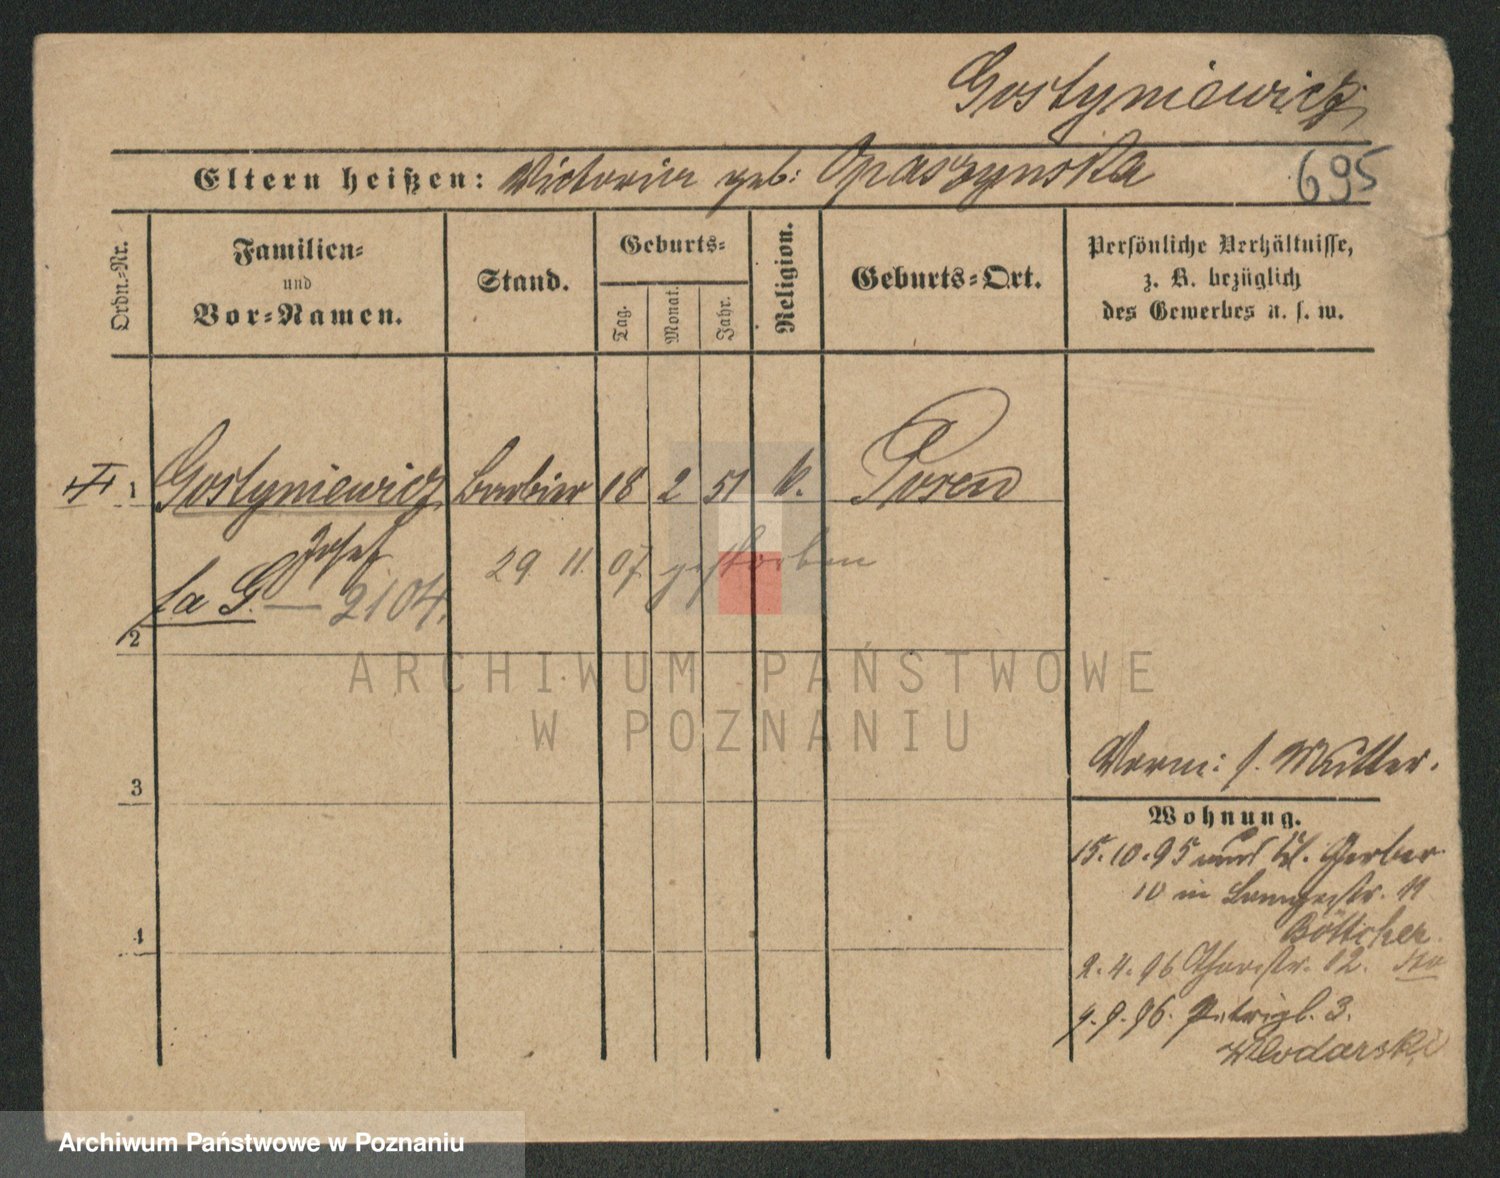 Gostyniewicz
Eltern heißen: Victoria geb: Opaszynska 695
Ordn.-Nr.
Familien-
und
Vor-Namen.
Stand.
Geburts-
Tag.
Monat.
Jahr.
Religion.
Geburts-Ort.
Persönliche Verhältnisse,
z. B. bezüglich
des Gewerbes u. s. w.
1 Gostyniewicz Barbier 18 2 51 k. Posen
Josef
29 11 07 gestorben
fa G. — 2104.
2
3
4
Verm: s. Mutter.
Wohnung.
15.10.95 Gerber
10 in Langestr. 11
Böttcher
2.4.96 Thorstr. 12.
9.9.96. Petripl. 3.
Wlodarski
ARCHIWUM PAŃSTWOWE
W POZNANIU
Archiwum Państwowe w Poznaniu